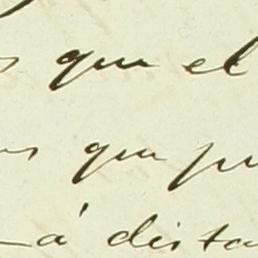 que el
que
á dista